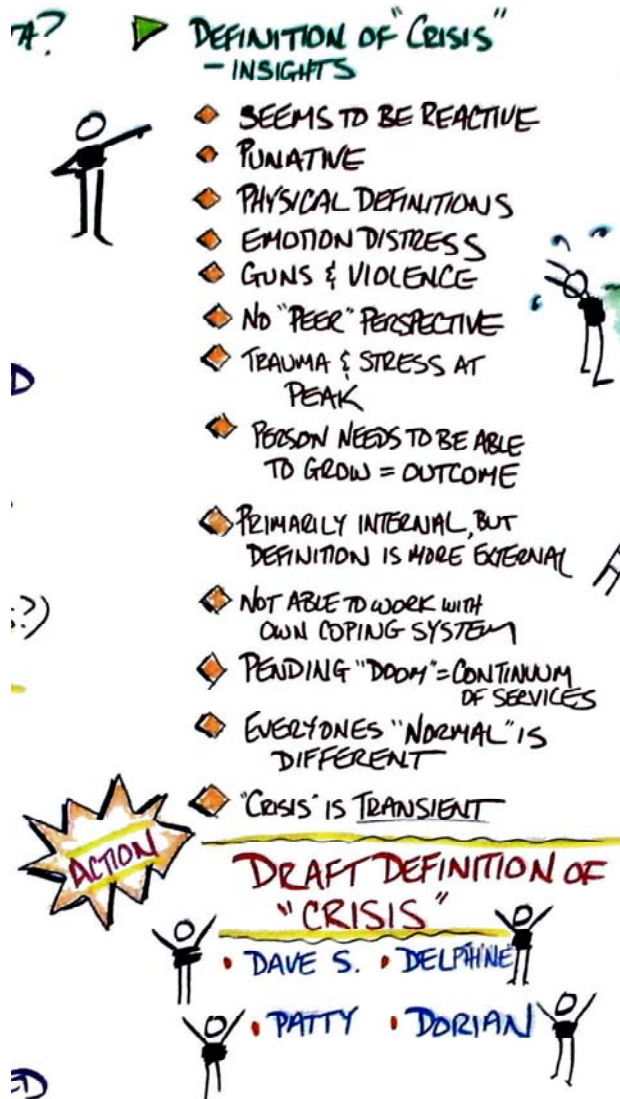 A?
DEFINITION OF "CRISIS"
- INSIGHTS
SEEMS TO BE REACTIVE
PUNATIVE
PHYSICAL DEFINITIONS
EMOTION DISTRESS
GUNS & VIOLENCE
NO "PEER" PERSPECTIVE
TRAUMA & STRESS AT
PEAK
PERSON NEEDS TO BE ABLE
TO GROW = OUTCOME
PRIMARILY INTERNAL, BUT
DEFINITION IS MORE EXTERNAL
NOT ABLE TO WORK WITH
OWN COPING SYSTEM
PENDING "DOOM" = CONTINUUM
OF SERVICES
EVERYONES "NORMAL" IS
DIFFERENT
"CRISIS" IS TRANSIENT
ACTION
DRAFT DEFINITION OF
"CRISIS"
• DAVE S. • DELPHINE
• PATTY • DORIAN